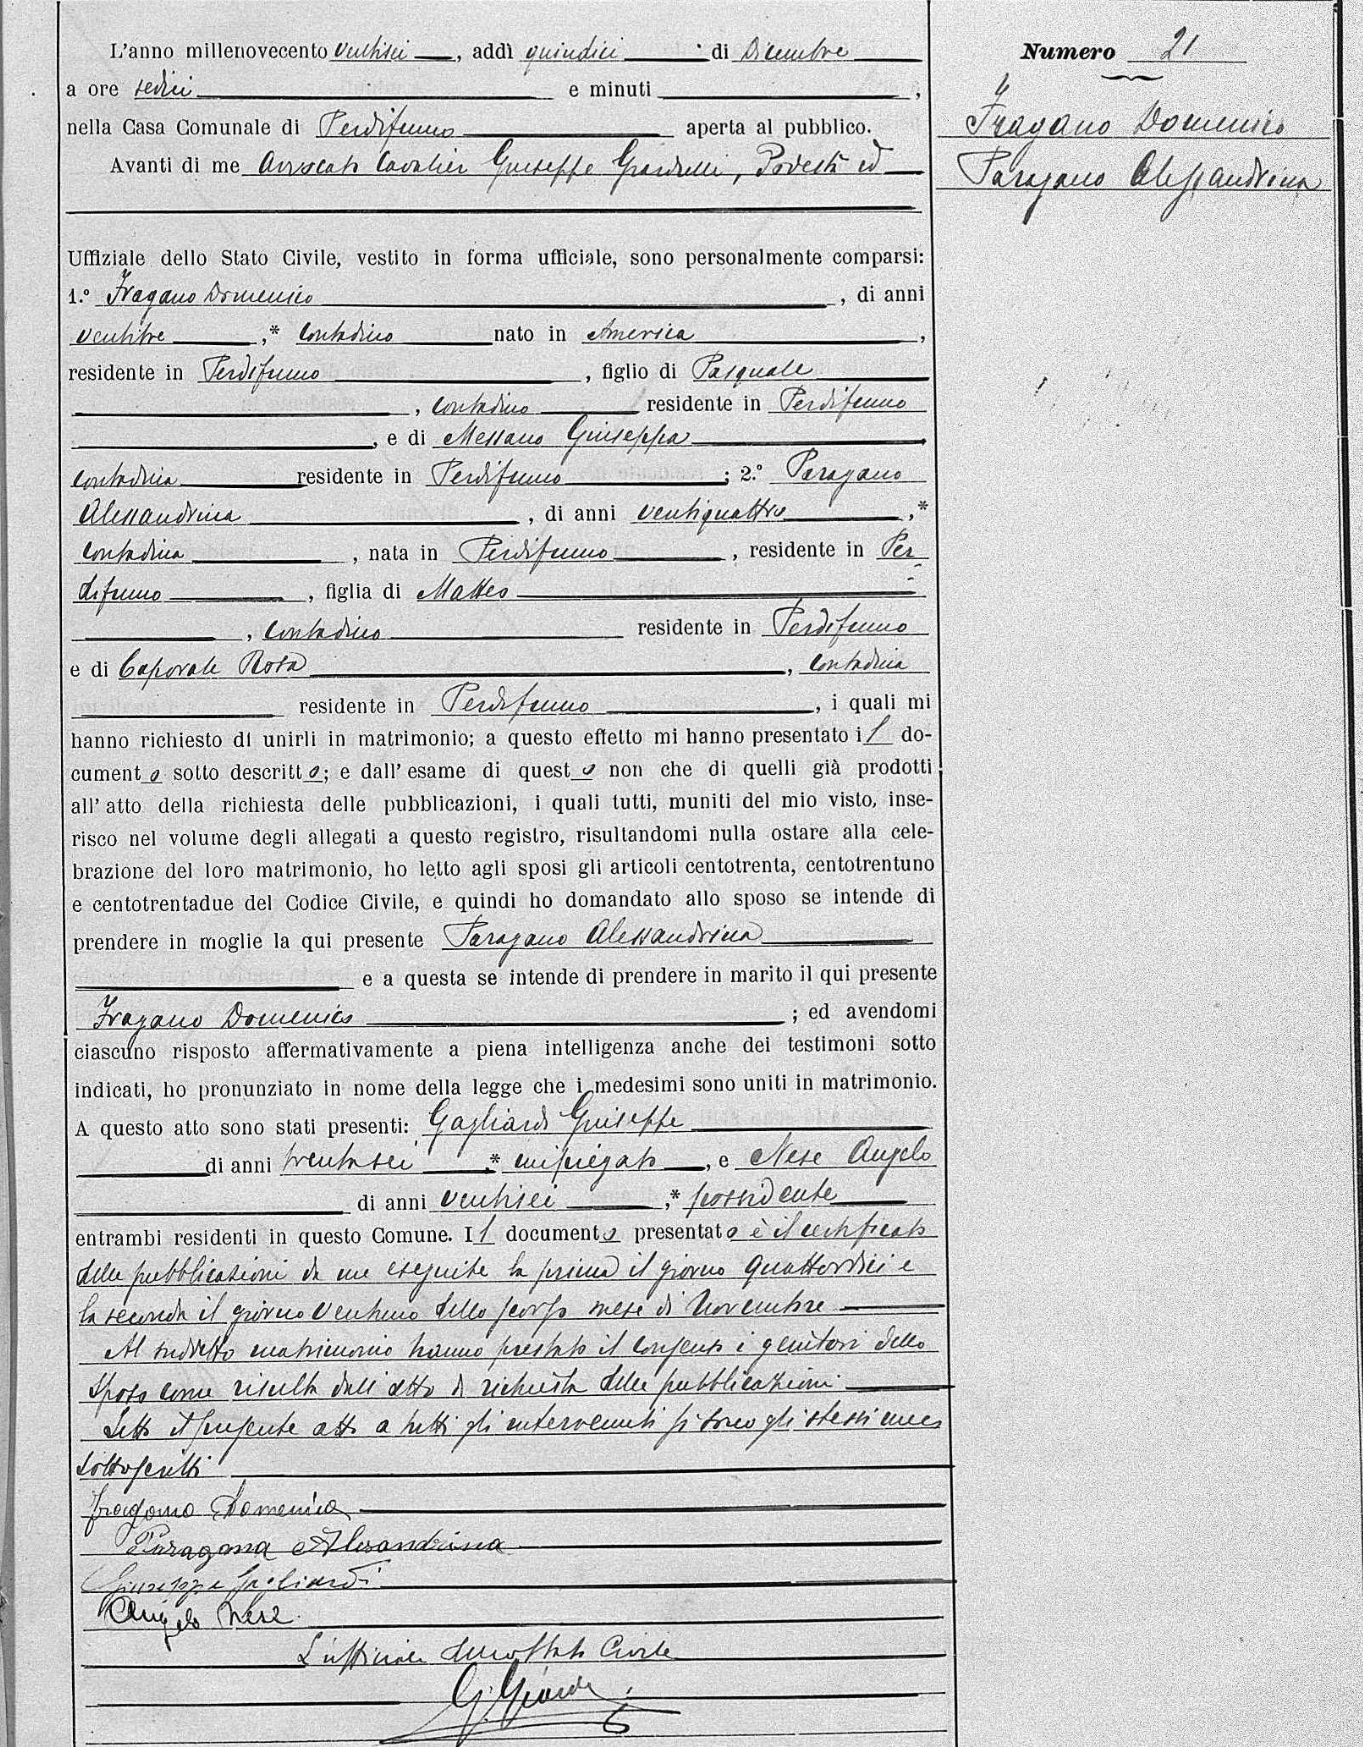 L'anno millenovecento ventisei, addì quindici di Dicembre
Numero 21
a ore sedici e minuti ,
Fragano Domenico
nella Casa Comunale di Perdifumo aperta al pubblico.
Paragano Alessandrina
Avanti di me Avvocato Cavalier Giuseppe , Podestà ed
Uffiziale dello Stato Civile, vestito in forma ufficiale, sono personalmente comparsi:
1.° Fragano Domenico, di anni
ventitre,* contadino nato in America,
residente in Perdifumo, figlio di Pasquale
, contadino residente in Perdifumo
, e di Messano Giuseppa
contadina residente in Perdifumo; 2.° Paragano
Alessandrina, di anni ventiquattro,*
contadina, nata in Perdifumo, residente in Per-
difumo, figlia di Matteo
, contadino residente in Perdifumo
e di Caporale Rosa, contadina
residente in Perdifumo, i quali mi
hanno richiesto di unirli in matrimonio; a questo effetto mi hanno presentato il do-
cumento sotto descritto; e dall'esame di questo non che di quelli già prodotti
all'atto della richiesta delle pubblicazioni, i quali tutti, muniti del mio visto, inse-
risco nel volume degli allegati a questo registro, risultandomi nulla ostare alla cele-
brazione del loro matrimonio, ho letto agli sposi gli articoli centotrenta, centotrentuno
e centotrentadue del Codice Civile, e quindi ho domandato allo sposo se intende di
prendere in moglie la qui presente Paragano Alessandrina
e a questa se intende di prendere in marito il qui presente
Fragano Domenico; ed avendomi
ciascuno risposto affermativamente a piena intelligenza anche dei testimoni sotto
indicati, ho pronunziato in nome della legge che i medesimi sono uniti in matrimonio.
A questo atto sono stati presenti: Gagliardi Giuseppe
di anni trentasei * impiegato, e Nese Angelo
di anni ventisei,* possidente
entrambi residenti in questo Comune. Il documento presentato è il certificato
delle pubblicazioni da me eseguite la prima il giorno quattordici e
la seconda il giorno ventuno dello scorso mese di Novembre
Al suddetto matrimonio hanno prestato il consenso i genitori dello
sposo come risulta dall'atto di richiesta delle pubblicazioni.
Letto il presente atto a tutti gli intervenuti si sono gli stessi meco
sottoscritti
Fragano Domenico
Paragana Alesandrina
Giuseppe Gagliardi
Angelo Nese
L'ufficiale dello Stato Civile